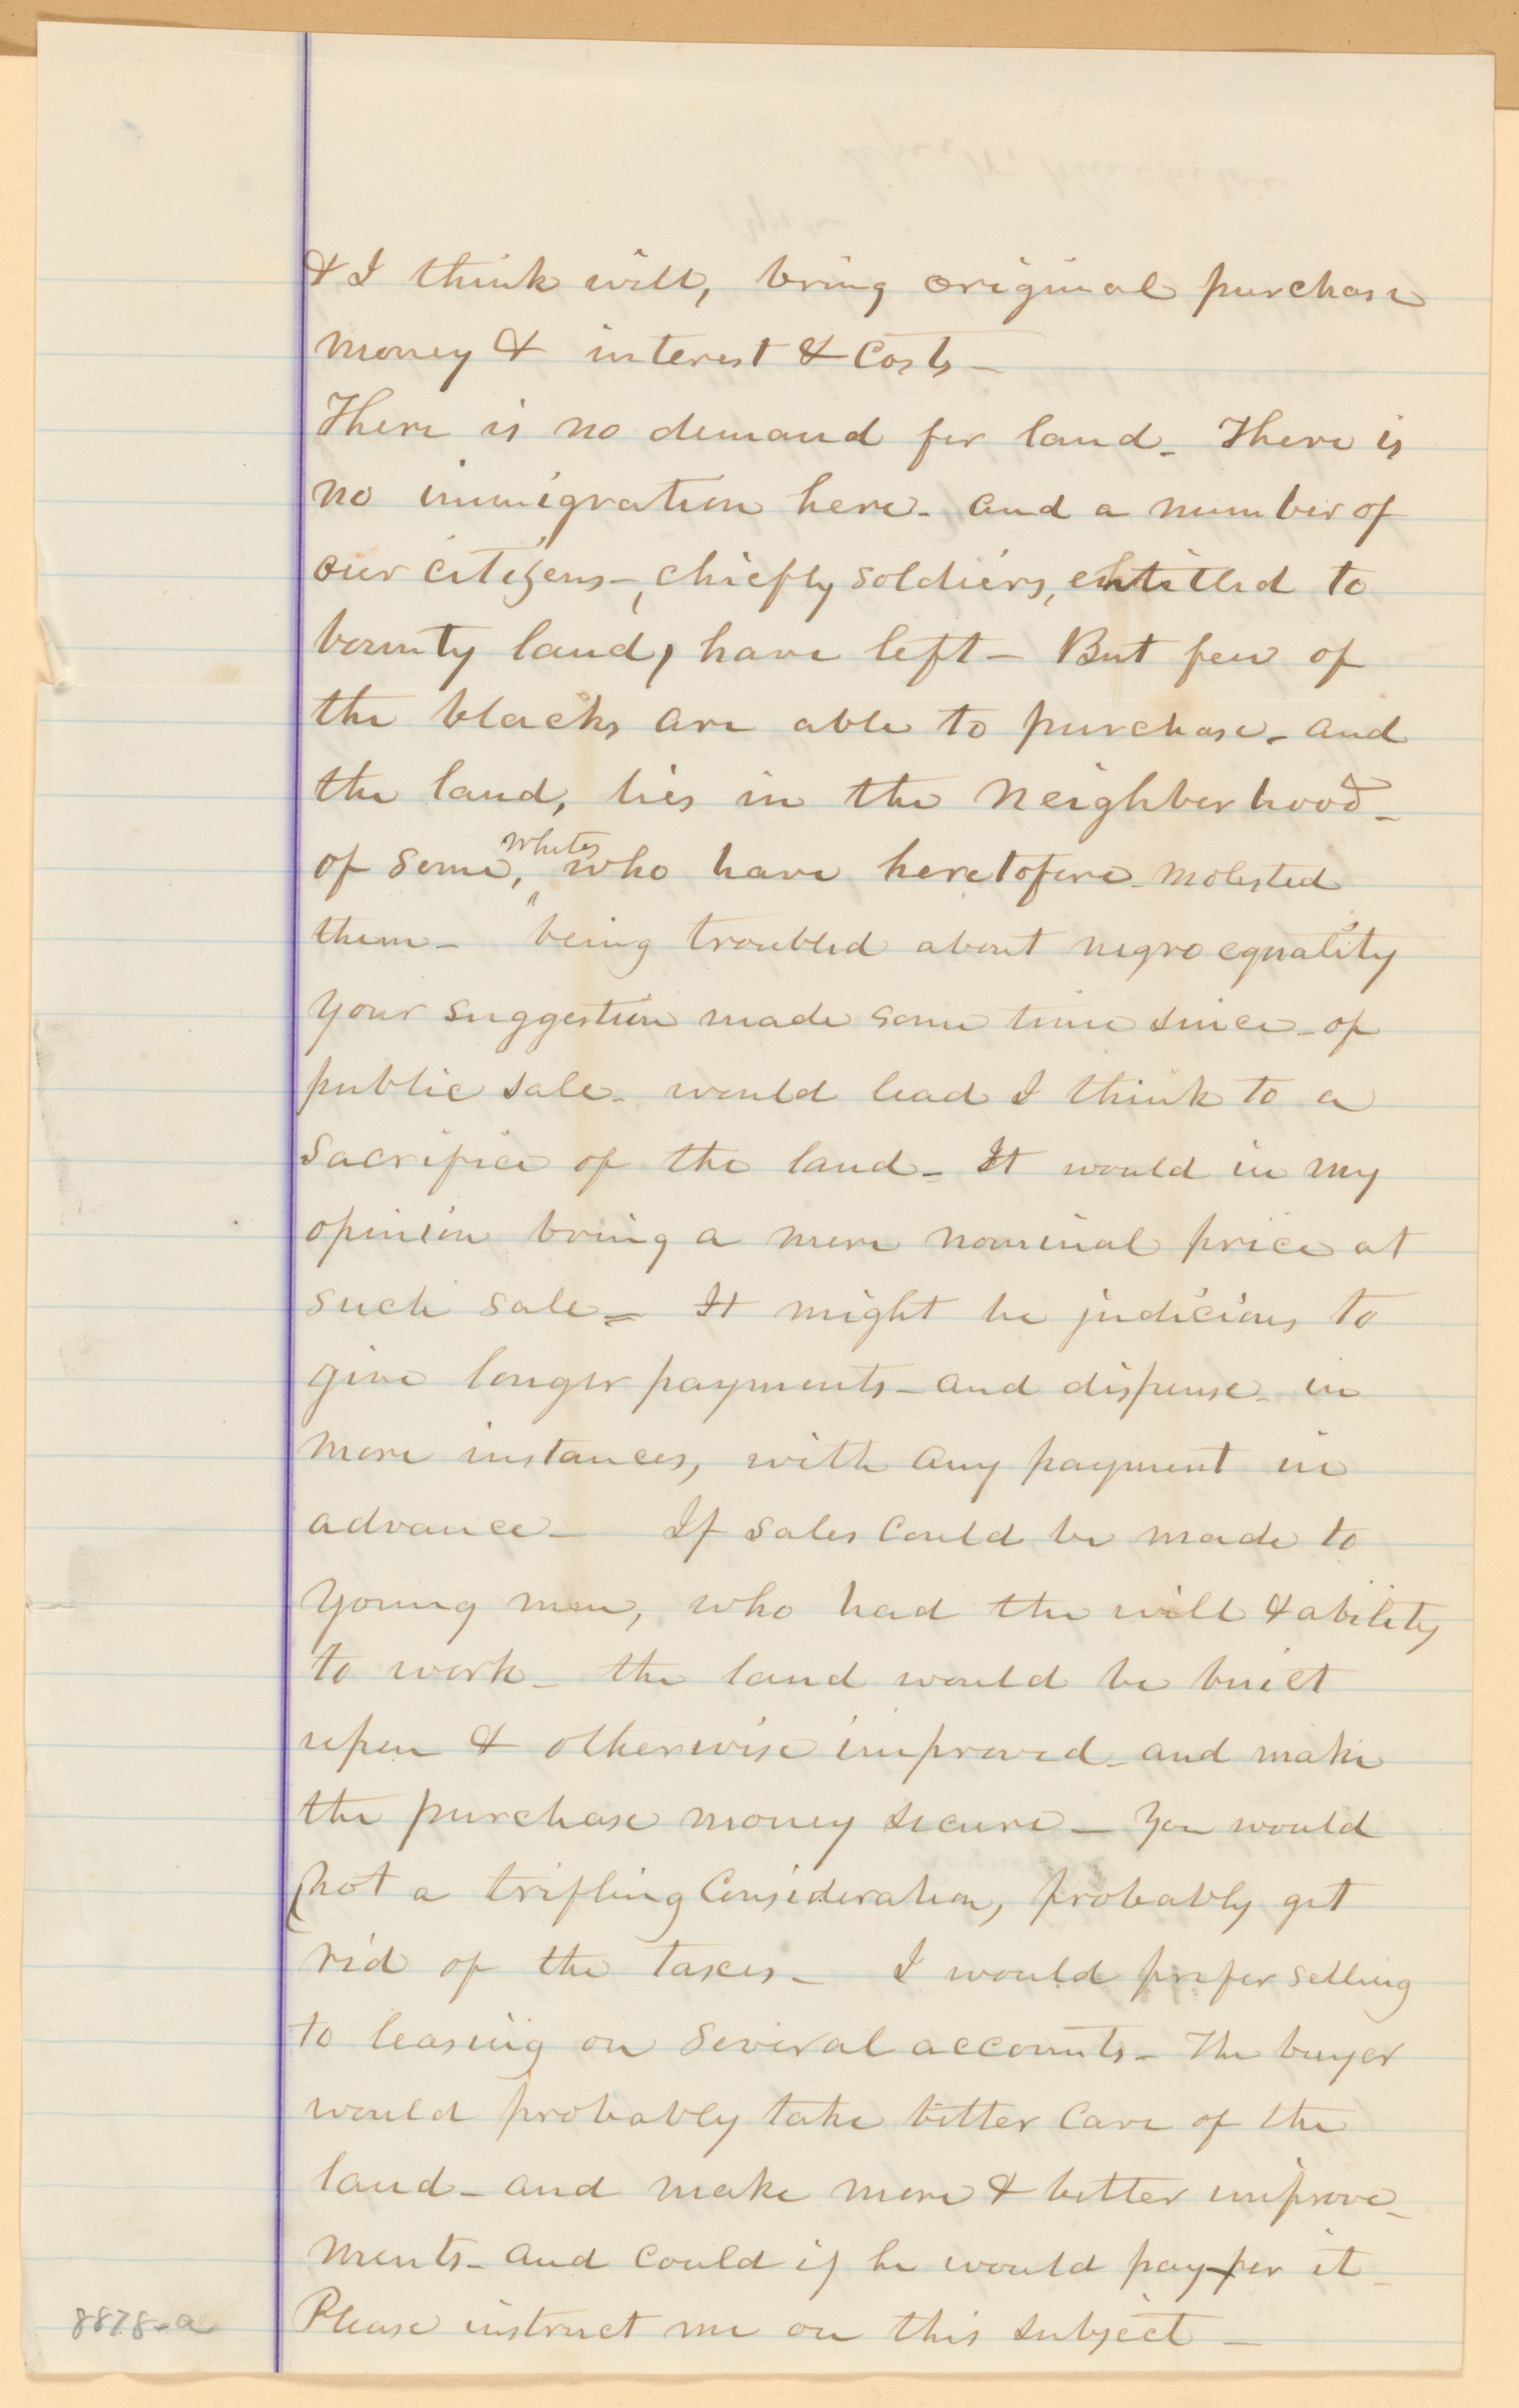 & I think will, bring original purchase
money & interest & Costs -
There is no demand for land - There is
no immigration here - and a number of
our citizens -, chiefly soldiers, entitled to
bounty land, have left - But few of
the blacks are able to purchase - and
the land, lies in the neighborhood -
of some, whites who have heretofore molested
them - being troubled about negro equality
Your suggestion made some time since - of
public sale - would lead I think to a
sacrifice of the land - It would in my
opinion bring a mere nominal price at
such sale = It might be judicious to
give longer payments - and dispense - in
more instances, with any payment in
advance - If sales could be made to
young men, who had the will & ability
to work - the land would be built
upon & otherwise improved - and make
the purchase money secure - You would
(not a trifling Consideration, probably get
rid of the taxes - I would prefer selling
to leasing on several accounts - The buyer
would probably take better care of the
land - and make more & better improve-
ments - and could if he would pay for it -
Please instruct me on this subject -
8878-a